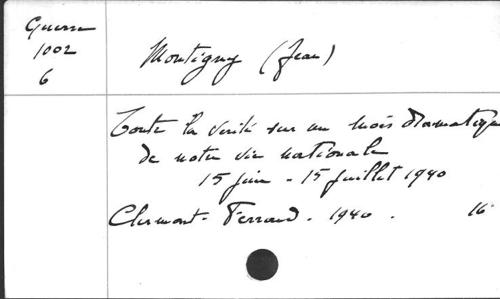 Guerre
1002
6
Montigny (Jean)
Toute la vérité sur un mois dramatique
de notre vie nationale
15 juin - 15 juillet 1940
Clermont-Ferrand. 1940. 16